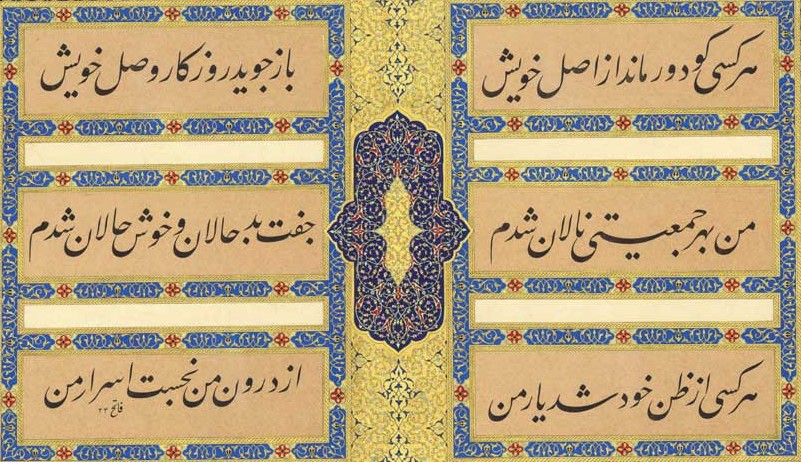 هر کسی کو دور ماند از اصل خویش
باز جوید روزگار وصل خویش
من بهر جمعیتی نالان شدم
جفت بد حالان و خوش حالان شدم
هر کسی از ظن خود شد یار من
از درون من نجست اسرار من
فاتح ۲۳